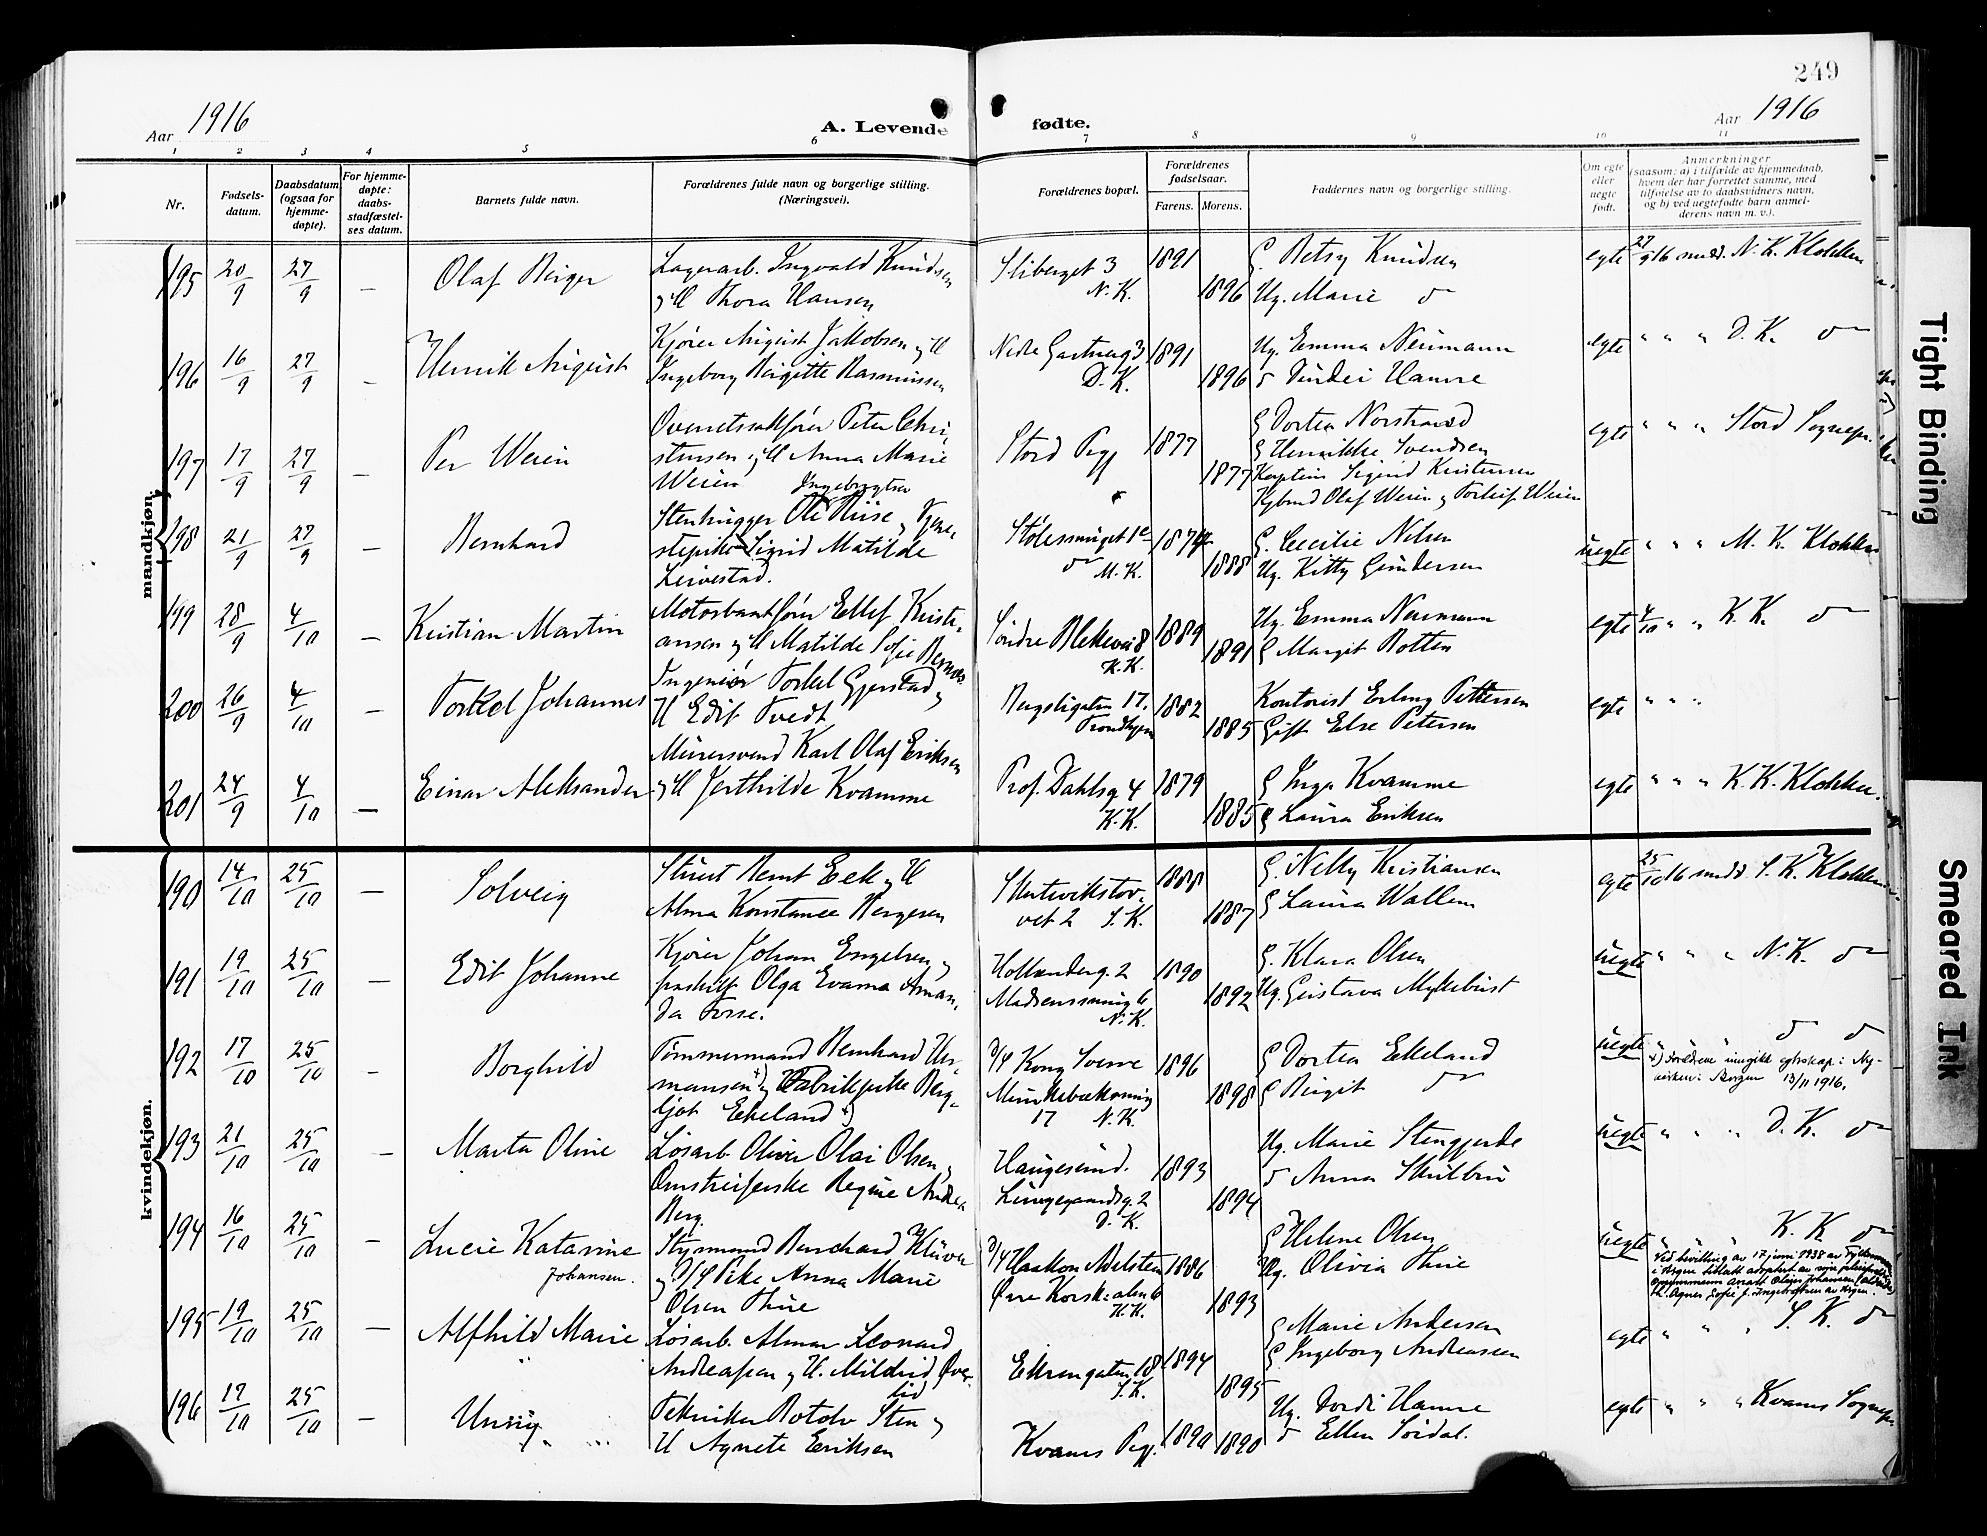 249
Aar 1916
A. Levende fødte.
Aar 1916
1 2 3 4 5 6 7 8 9 10 11
Nr.
Fødsels-
datum.
Daabsdatum
(ogsaa for
hjemme-
døpte).
For hjemme-
døpte:
daabs-
stadfæstel-
ses datum.
Barnets fulde navn.
Forældrenes fulde navn og borgerlige stilling.
(Næringsvei).
Forældrenes bopæl.
Forældrenes
fødselsaar.
Farens. Morens.
Faddernes navn og borgerlige stilling.
Om egte
eller
uegte
født.
Anmerkninger
(saasom: a) i tilfælde av hjemmedaab,
hvem der har forrettet samme, med
tilføielse av to daabsvidners navn,
og b) ved uegtefødte barn anmel-
derens navn m. v.).
mandkjøn.
195 20/9 27/9 — Olaf Birger
Lagerarb. Ingvald Knudsen
og H Thora Hansen
Sliberget 3
N. K.
1891 1896
G. Betsy Knudsen
Ug. Marie do
egte 27/9 16 medd. N. K. Klokker
196 16/9 27/9 — Henrik August
Kjører August Jakobsen og H
Ingeborg Birgitte Rasmussen
Nedre Gartnerg 3
D. K.
1891 1896
Ug. Emma Neumann
do Hamre
egte " " " D. K. do
197 17/9 27/9 — Per Weien
Overretssakfører Peter Chri-
stensen og H Anna Marie
Weien
Stord Pgj
1877 1877
G Dortea Norstrand
G Henrikke Svendsen
Kaptein Sigurd Kristensen
Olaf Weien og Torleif Weien
egte " " " Stord Sognepr.
198 21/9 27/9 — Bernhard
Ingebrigtsen
Stenhugger Ole Riise og Tjene-
stepike Sigrid Matilde
Leivestad.
Stølessmuget 1c
do M. K.
1874 1888
G. Cecilie Nilsen
Ug. Kitty Gundersen
uegte " " " M. K. Klokker
199 28/9 4/10 — Kristian Martin
Motorbaatfører Ellef Kristi-
ansen og H Matilde Sofie
Søndre Blekevei 8
K. K.
1889 1891
Ug. Emma Neumann
G Margit Botten
egte 4/10 " " K. K. do
200 26/9 4/10 — Torkel Johannes
Ingeniør Torkel Gjerstad og
H Edit Tvedt
Bergsligaten 17.
Trondhjem
1882 1885
Kontorist Erling Pettersen
Gift Else Petersen
egte " " "
201 24/9 4/10 — Einar Aleksander
Murersvend Karl Olaf Eriksen
og H Jerthilde Kvamme
Prof. Dahlsg 4
K. K.
1879 1885
G Inga Kvamme
G Laura Eriksen
egte " " " K. K. Klokker.
kvindekjøn.
190 14/10 25/10 — Solveig
Stuert Bernt Eek og H
Alma Konstance Bergesen
Skuteviktor-
vet 2 S. K.
1888 1887
G. Nelly Kristiansen
G Laura Wallem
egte 25/10 16 medd. S. K. Klokker
191 19/10 25/10 — Edit Johanne
Kjører Johan Engelsen og
Olga Evama Aman-
da Fosse.
Hollænderg. 2
Madsenssmug 6
N. K.
1890 1892
G. Klara Olsen
Ug. Gustava Myklebust
uegte " " " N. K. do
192 17/10 25/10 — Borghild
Tømmermand Bernhard Her-
mansen x) og Fabrikpike Berg-
ljot Eikeland x)
D/S Kong Sverre
Munkebæksmug
17 N. K.
1896 1898
G Dortea Eikeland
G Birgit do
uegte " " " do do
x) Forældrene inngikk egteskap i Ny-
kirken i Bergen 13/11 1916,
193 21/10 25/10 — Marta Oline
Løsarb. Oliver Olai Olsen og
Omstreiferske Regine Andrea
Berg.
Haugesund.
Lungegaardsg. 2
D. K.
1893 1894
Ug. Marie Stengjerde
do Anna Skulbru
uegte " " " D. K. do
194 16/10 25/10 — Lucie Katarine
Johansen.
Styrmand Burchard Klüwer
og Pike Anna Marie
Olsen Thue
D/S Haakon Adelsten
Øvre Korsk.alm 6
K. K.
1886 1893
G Helene Olsen
Ug. Olivia Thue
uegte " " " K. K. do
Ved bevilling av 17 juni 1938 av Fylkesmannen
i Bergen blitt adoptert av
195 19/10 25/10 — Alfhild Marie
Løsarb. Almar Leonard
Andreassen og H. Mildrid Øver-
lid
Ekrengaten 18
S. K.
1894 1895
G Marie Andersen
G. Ingeborg Andreassen
egte " " " S. K. do
196 17/10 25/10 — Unni
Tekniker Botolv Sten og
H Agnete Eriksen
Kvams Pgj.
1890 1890
Ug. Dordi Hamre
do Ellen Sørdal.
egte " " " Kvams Sognepr
Tight Binding
Smeared Ink